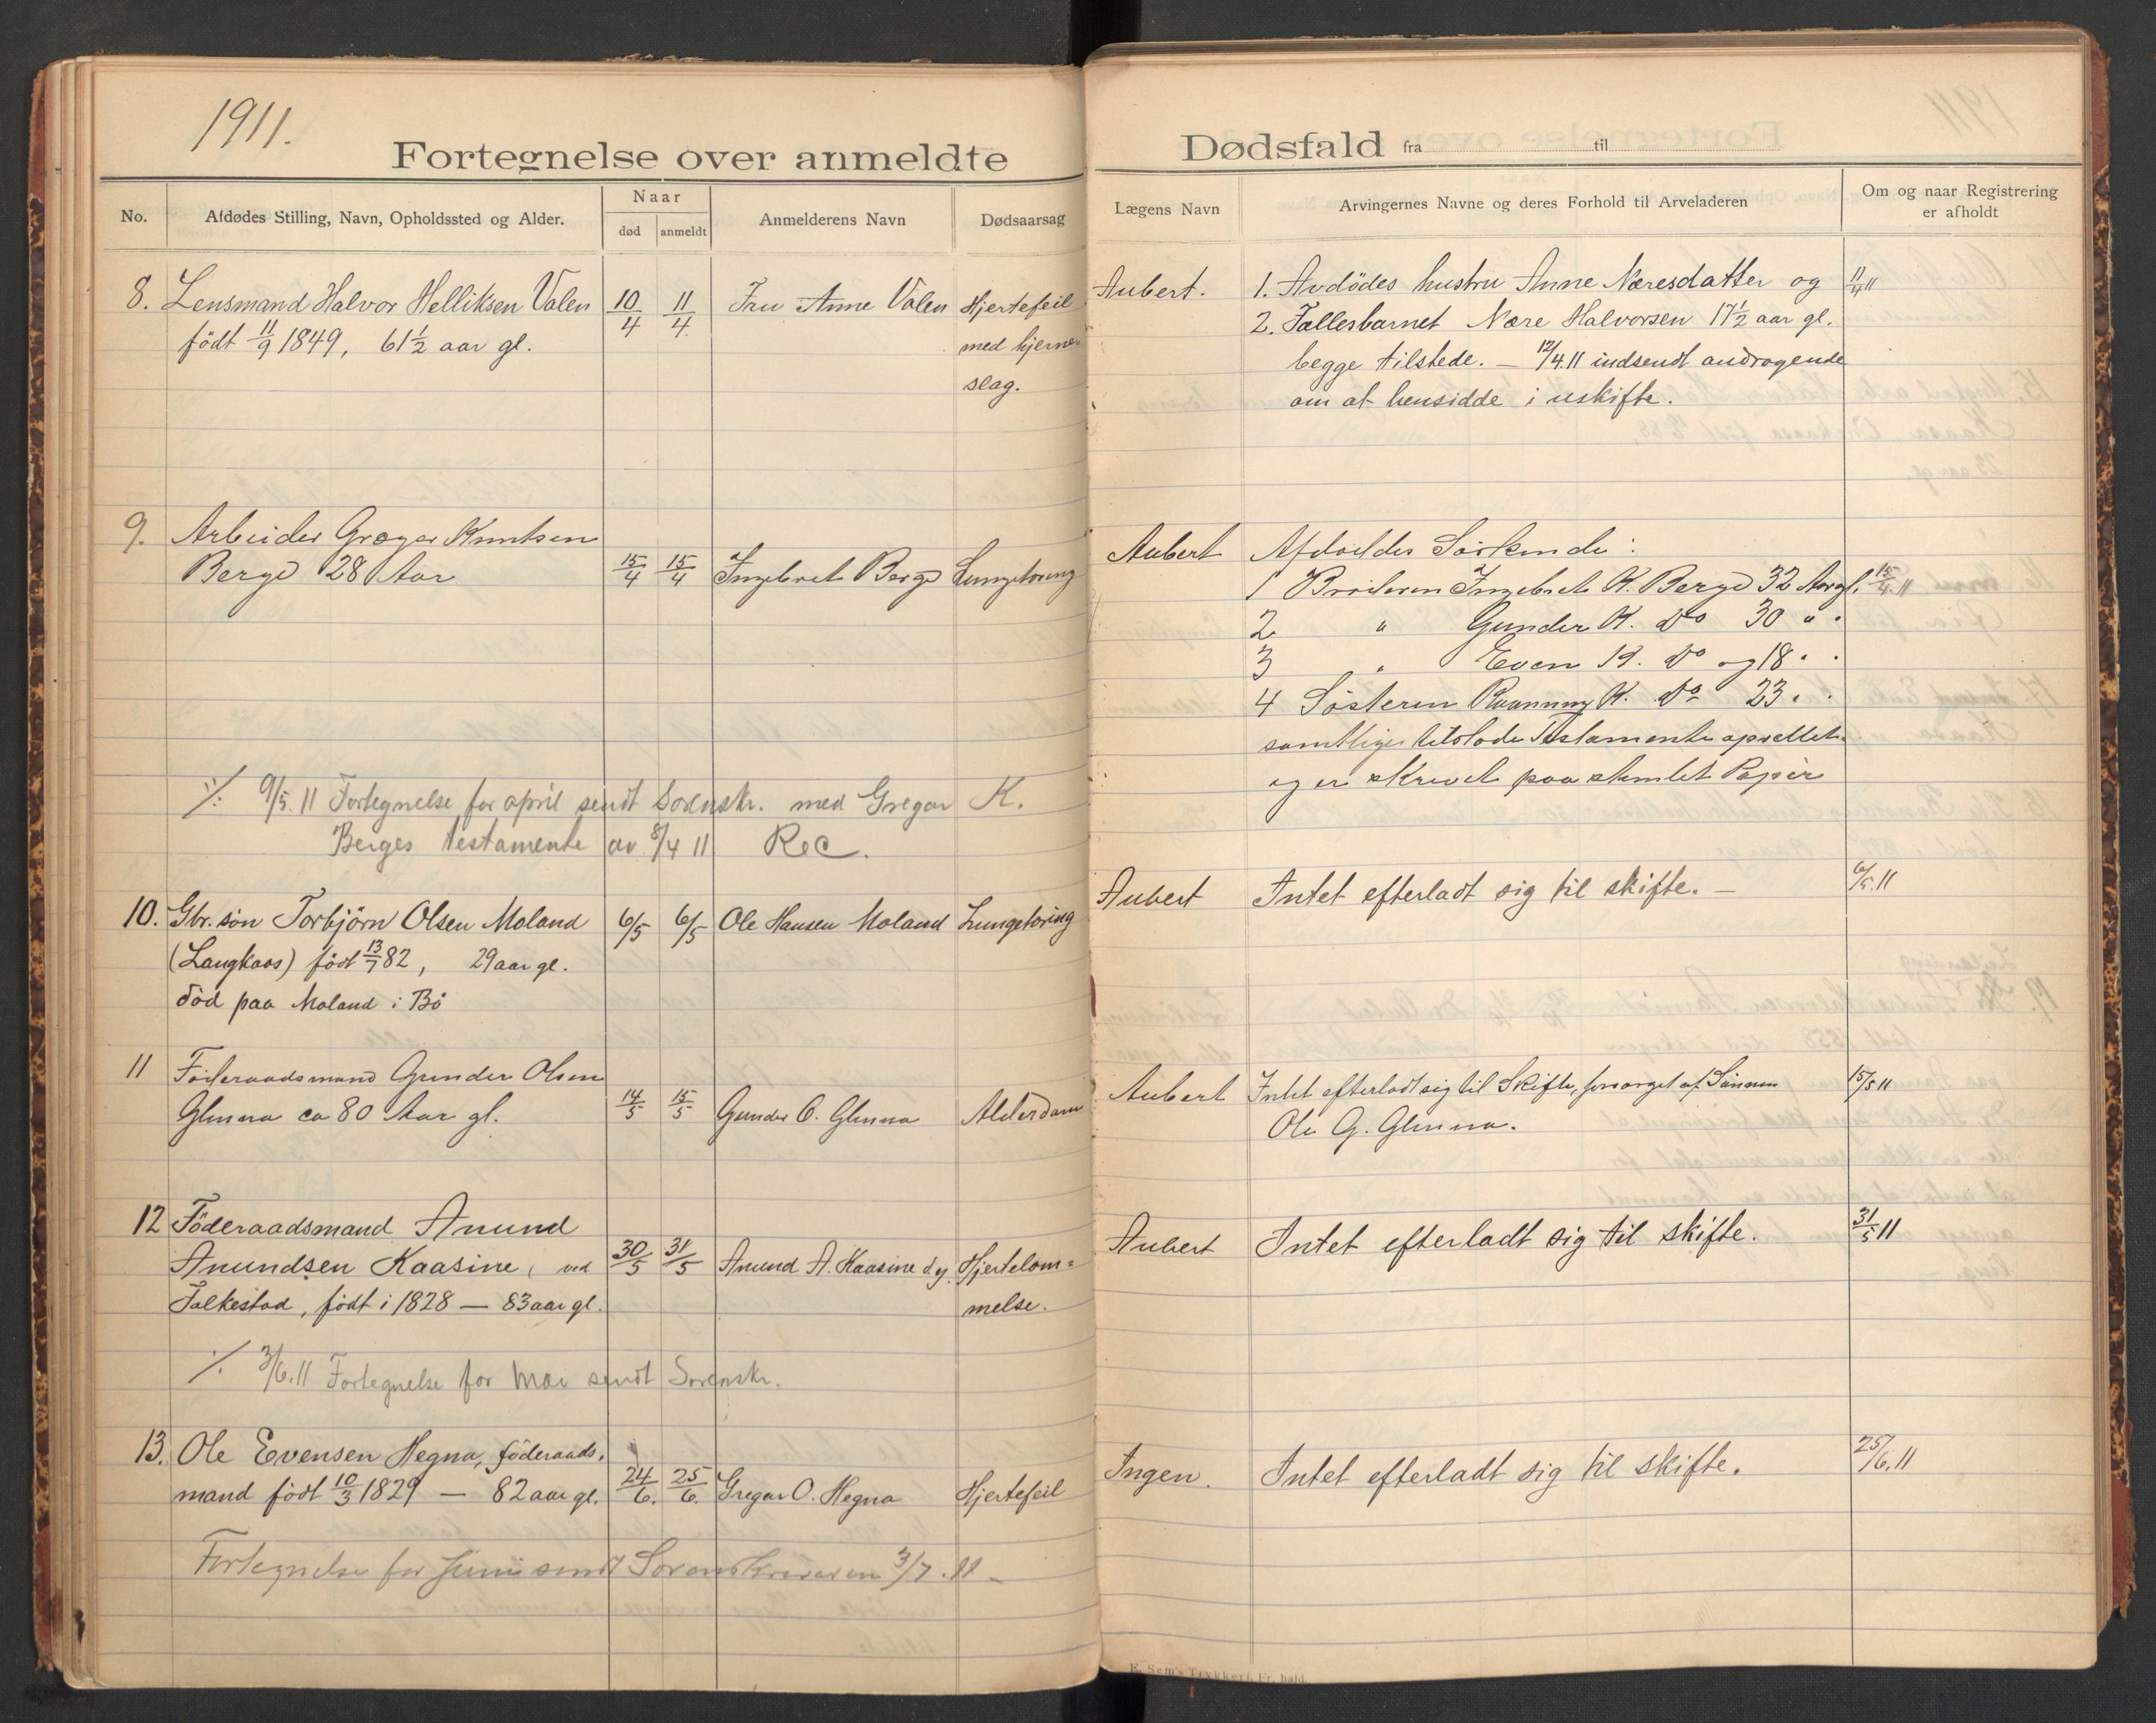 1911.
Fortegnelse over anmeldte
No.
Afdødes Stilling, Navn, Opholdssted og Alder.
Naar
død
anmeldt
Anmelderens Navn
Dødsaarsag
8. Lensmand Halvor Helliksen Valen 10/4 11/4 Fru Anne Valen Hjertefeil
født 11/9 1849, 61½ aar gl. med hjerne-
slag.
9. Arbeider Gregar Knutsen
Berge 28 Aar 15/4 15/4 Ingebret Berge Lungetæring
./. 9/5.11 Fortegnelse for april sendt Sorenskr. med Gregar K.
Berges testamente av 8/4 11 Rec.
10. Gbr. søn Torbjörn Olsen Moland 6/5 6/5 Ole Hansen Moland Lungetæring
(Langkaas) født 13/7 82, 29 aar gl.
død paa Moland i Bö
11 Föderaadsmand Gunder Olsen
Glenna ca 80 Aar gl. 14/5 15/5 Gunder O. Glenna Alderdom
12 Föderaadsmand Anund
Anundsen Kaasine, ved 30/5 31/5 Anund A. Kaasine d.y. Hjertelam=
Folkestad, født i 1828 — 83 aar gl. melse.
./. 3/6.11 Fortegnelse for mai sendt Sorenskr.
13. Ole Evensen Hegna, föderaads-
mand født 10/3 1829 — 82 aar gl. 24/6. 25/6. Gregar O. Hegna Hjertefeil
Fortegnelse for Juni sendt Sorenskriveren 3/7.11 -
Dødsfald fra til
Lægens Navn
Arvingernes Navne og deres Forhold til Arveladeren
Om og naar Registrering
er afholdt
Aubert. 1. Avdødes hustru Anne Næresdatter og 11/4 11
2. Fællesbarnet Nære Halvorsen 17½ aar gl.
begge tilstede. — 12/4.11 indsendt andragende
om at hensidde i uskifte.
Aubert Afdødes Söskende:
1 Broderen Ingebret K. Berge 32 Aar gl. 15/4.11
2 " Gunder K. do 30 " "
3 " Even K. do og 18 " "
4 Søsteren K. do 23 " "
samtlige tilstede Testamente oprettet
og er skrevet paa stemlet Papir
Aubert Intet efterladt sig til skifte. — 6/5.11
Aubert Intet efterladt sig til Skifte, forsørget af Sønnen 15/5 11
Ole G. Glenna.
Aubert Intet efterladt sig til skifte. 31/5 11
Ingen. Intet efterladt sig til skifte. 25/6.11
E. Sem's Trykkeri, Fr.hald.